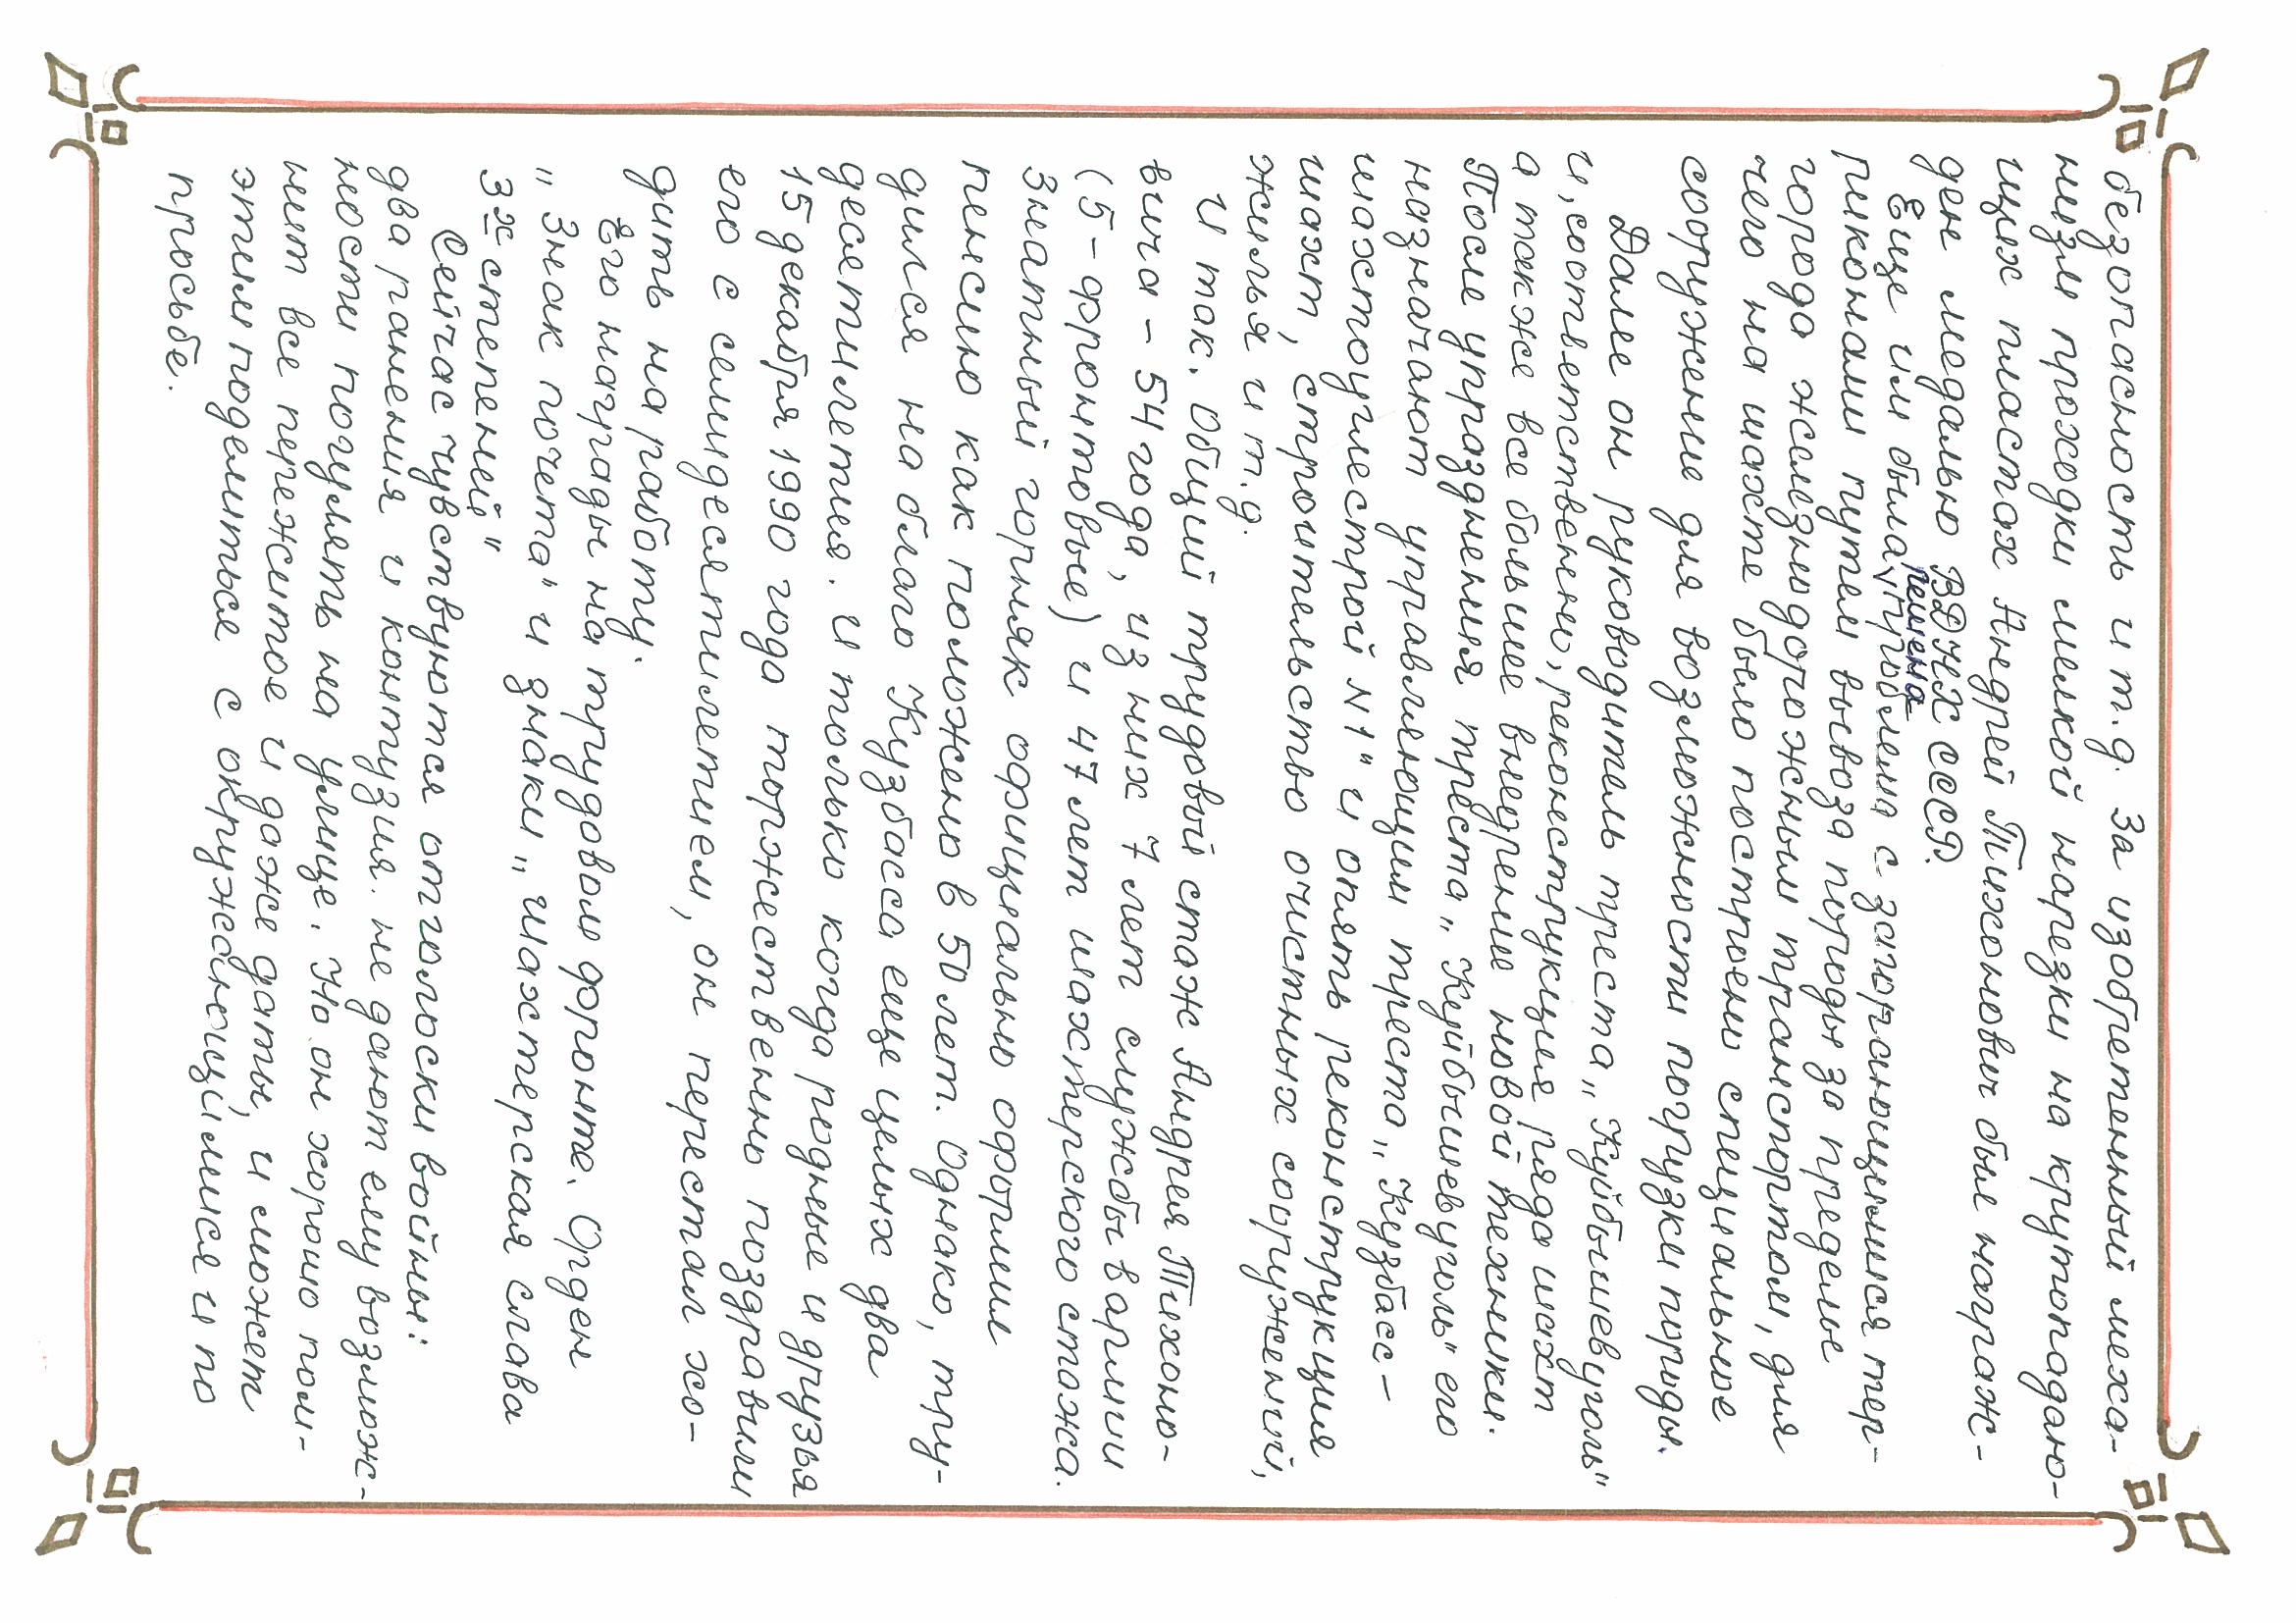 безопасность и т.д. За изобретенный меха-
низм проходки мелкой нарезки на крутопадаю-
щих пластах Андрей Тихонович был награж-
ден медалью ВДНХ СССР.
Еще им была решена проблема с загорающимися тер-
риконами путем вывоза породы за пределы
города железнодорожным транспортом, для
чего на шахте было построено специальное
сооружение для возможности погрузки породы.
Далее он руководитель треста „Куйбышевуголь"
и, соответственно, реконструкция ряда шахт
а также все большее внедрение новой техники.
После упразднения треста „Куйбышевуголь" его
назначают управляющим треста „Кузбасс-
шахтоуглестрой №1" и опять реконструкция
шахт, строительство очистных сооружений,
жилья и т.д.
И так. Общий трудовой стаж Андрея Тихоно-
вича – 54 года, из них 7 лет службы в армии
(5-фронтовые) и 47 лет шахтерского стажа.
Знатный горняк официально оформил
пенсию как положено в 50 лет. Однако, тру-
дился на благо Кузбасса еще целых два
десятилетия. И только когда родные и друзья
15 декабря 1990 года торжественно поздравили
его с семидесятилетием, он перестал хо-
дить на работу.
Его награды на трудовом фронте. Орден
„Знак почета" и знаки „Шахтерская слава
3х степеней"
Сейчас чувствуются отголоски войны:
два ранения и контузия не дают ему возмож-
ности погулять на улице. Но он хорошо пом-
нит все пережитое и даже даты, и может
этим поделиться с окружающимися и по
просьбе.